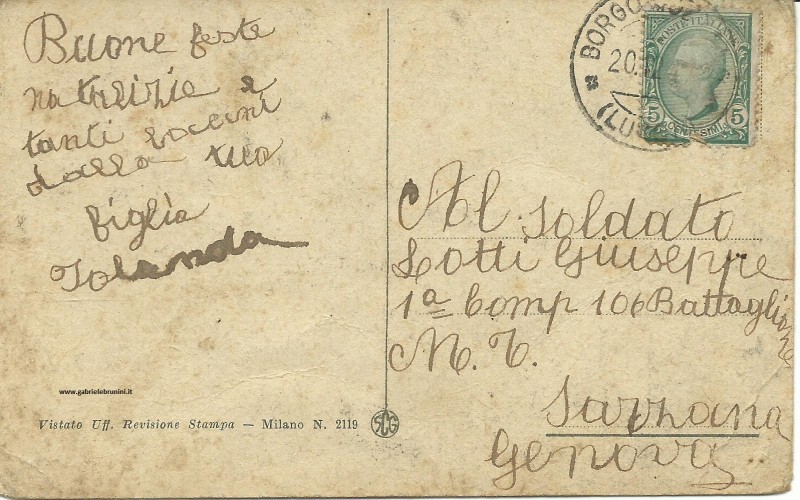 Buone feste
natalizie e
tanti baccini
dalla tua
figlia
Iolanda
www.gabrielebrunini.it
Vistato Uff. Revisione Stampa — Milano N. 2119
SCG
BORGO
20.
(LU
POSTE ITALIANE
5 CENTESIMI 5
Al Soldato
Lotti Giuseppe
1ª Comp 106 Battaglione
M. T.
Sarzana
Genova